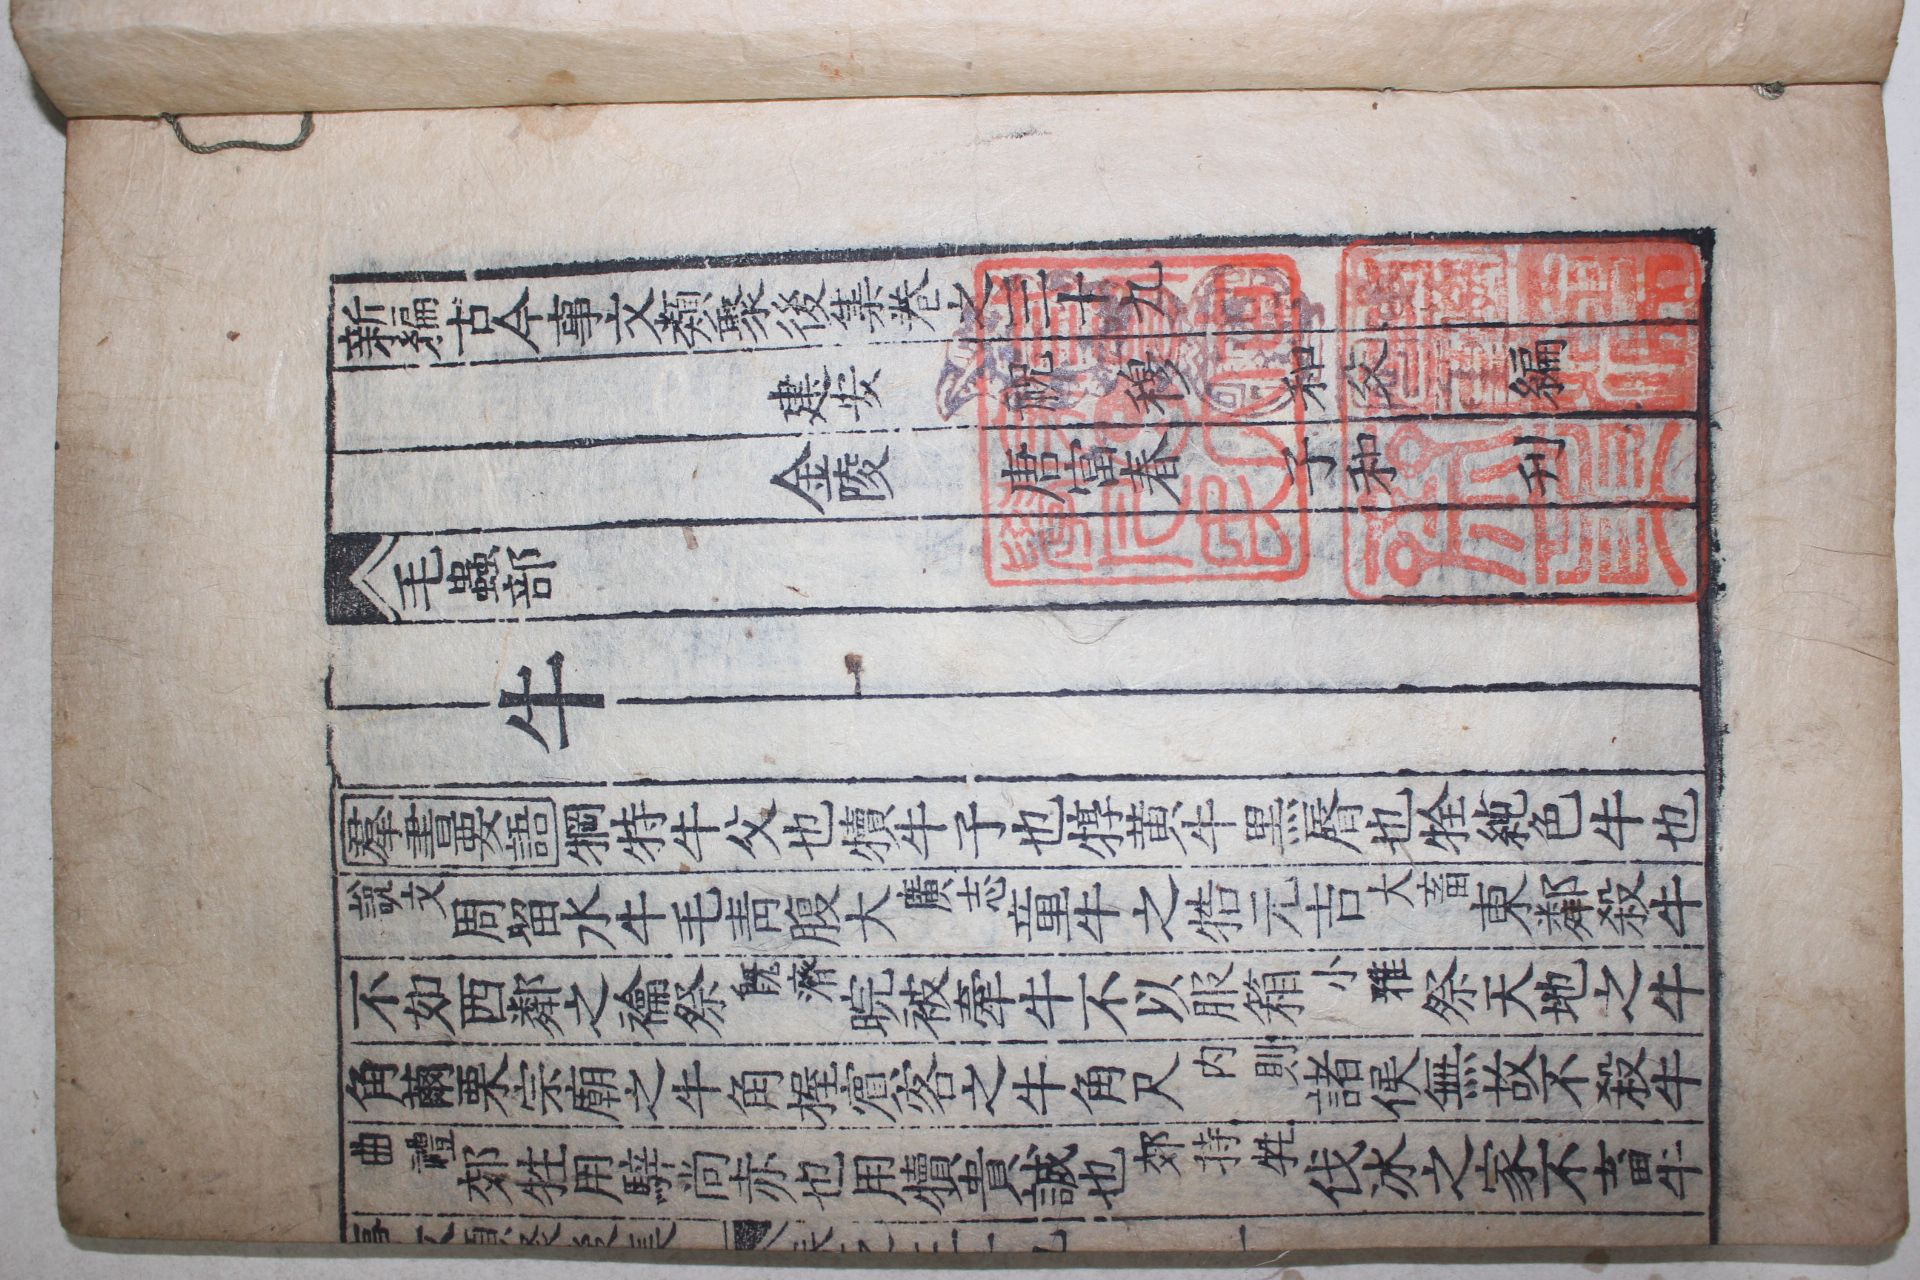 新編古今事文類聚後集卷之三十九
建安 祝穆 和父 編
金陵 唐富春 子和 刋
毛蟲部
牛
羣書要語 犅特牛父也犢牛子也犉黄牛黑脣也牷純色牛也
說文 周留水牛毛青腹大 廣志 童牛之牿元吉 大畜 東鄰殺牛
不如西鄰之禴祭 既濟 睆彼牽牛不以服箱 小雅 祭天地之牛
角繭栗宗廟之牛角握賓客之牛角尺 内則 諸侯無故不殺牛
曲禮 郊牲用騂尚赤也用犢貴誠也 郊特牲 伐冰之家不畜牛